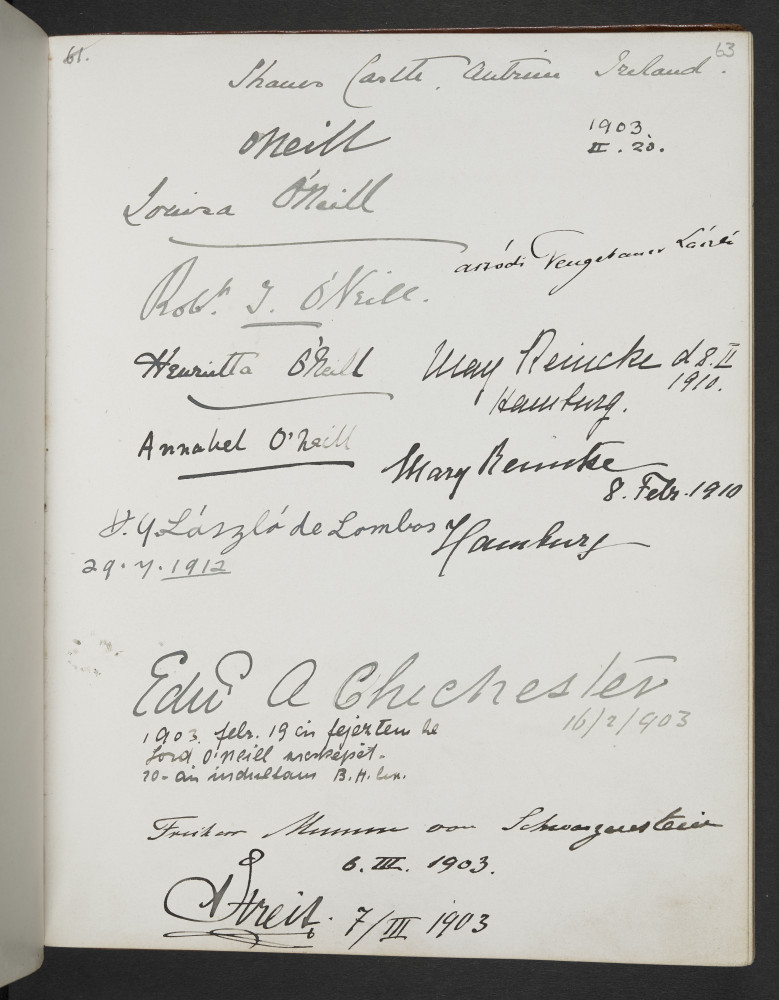 61.
63
Shanes Castle, Antrim Ireland.
1903.
II. 20.
O'Neill
Louisa O'Neill
aszódi Neugebauer László
Robt. T. O'Neill.
Henrietta O'Neill
May Reincke d 8. II
1910.
Hamburg.
Annabel O'Neill
Mary Reincke
8. Febr. 1910
Hamburg
László de Lombos
29. 7. 1912
Edwd A Chichester
16/2/903
1903. febr. 19 én fejeztem be
Lord O'Neill arcképét.
20-án indultam B.H.
Freiherr Mumm von Schwarzenstein
6. III. 1903.
AStreit. 7/III 1903